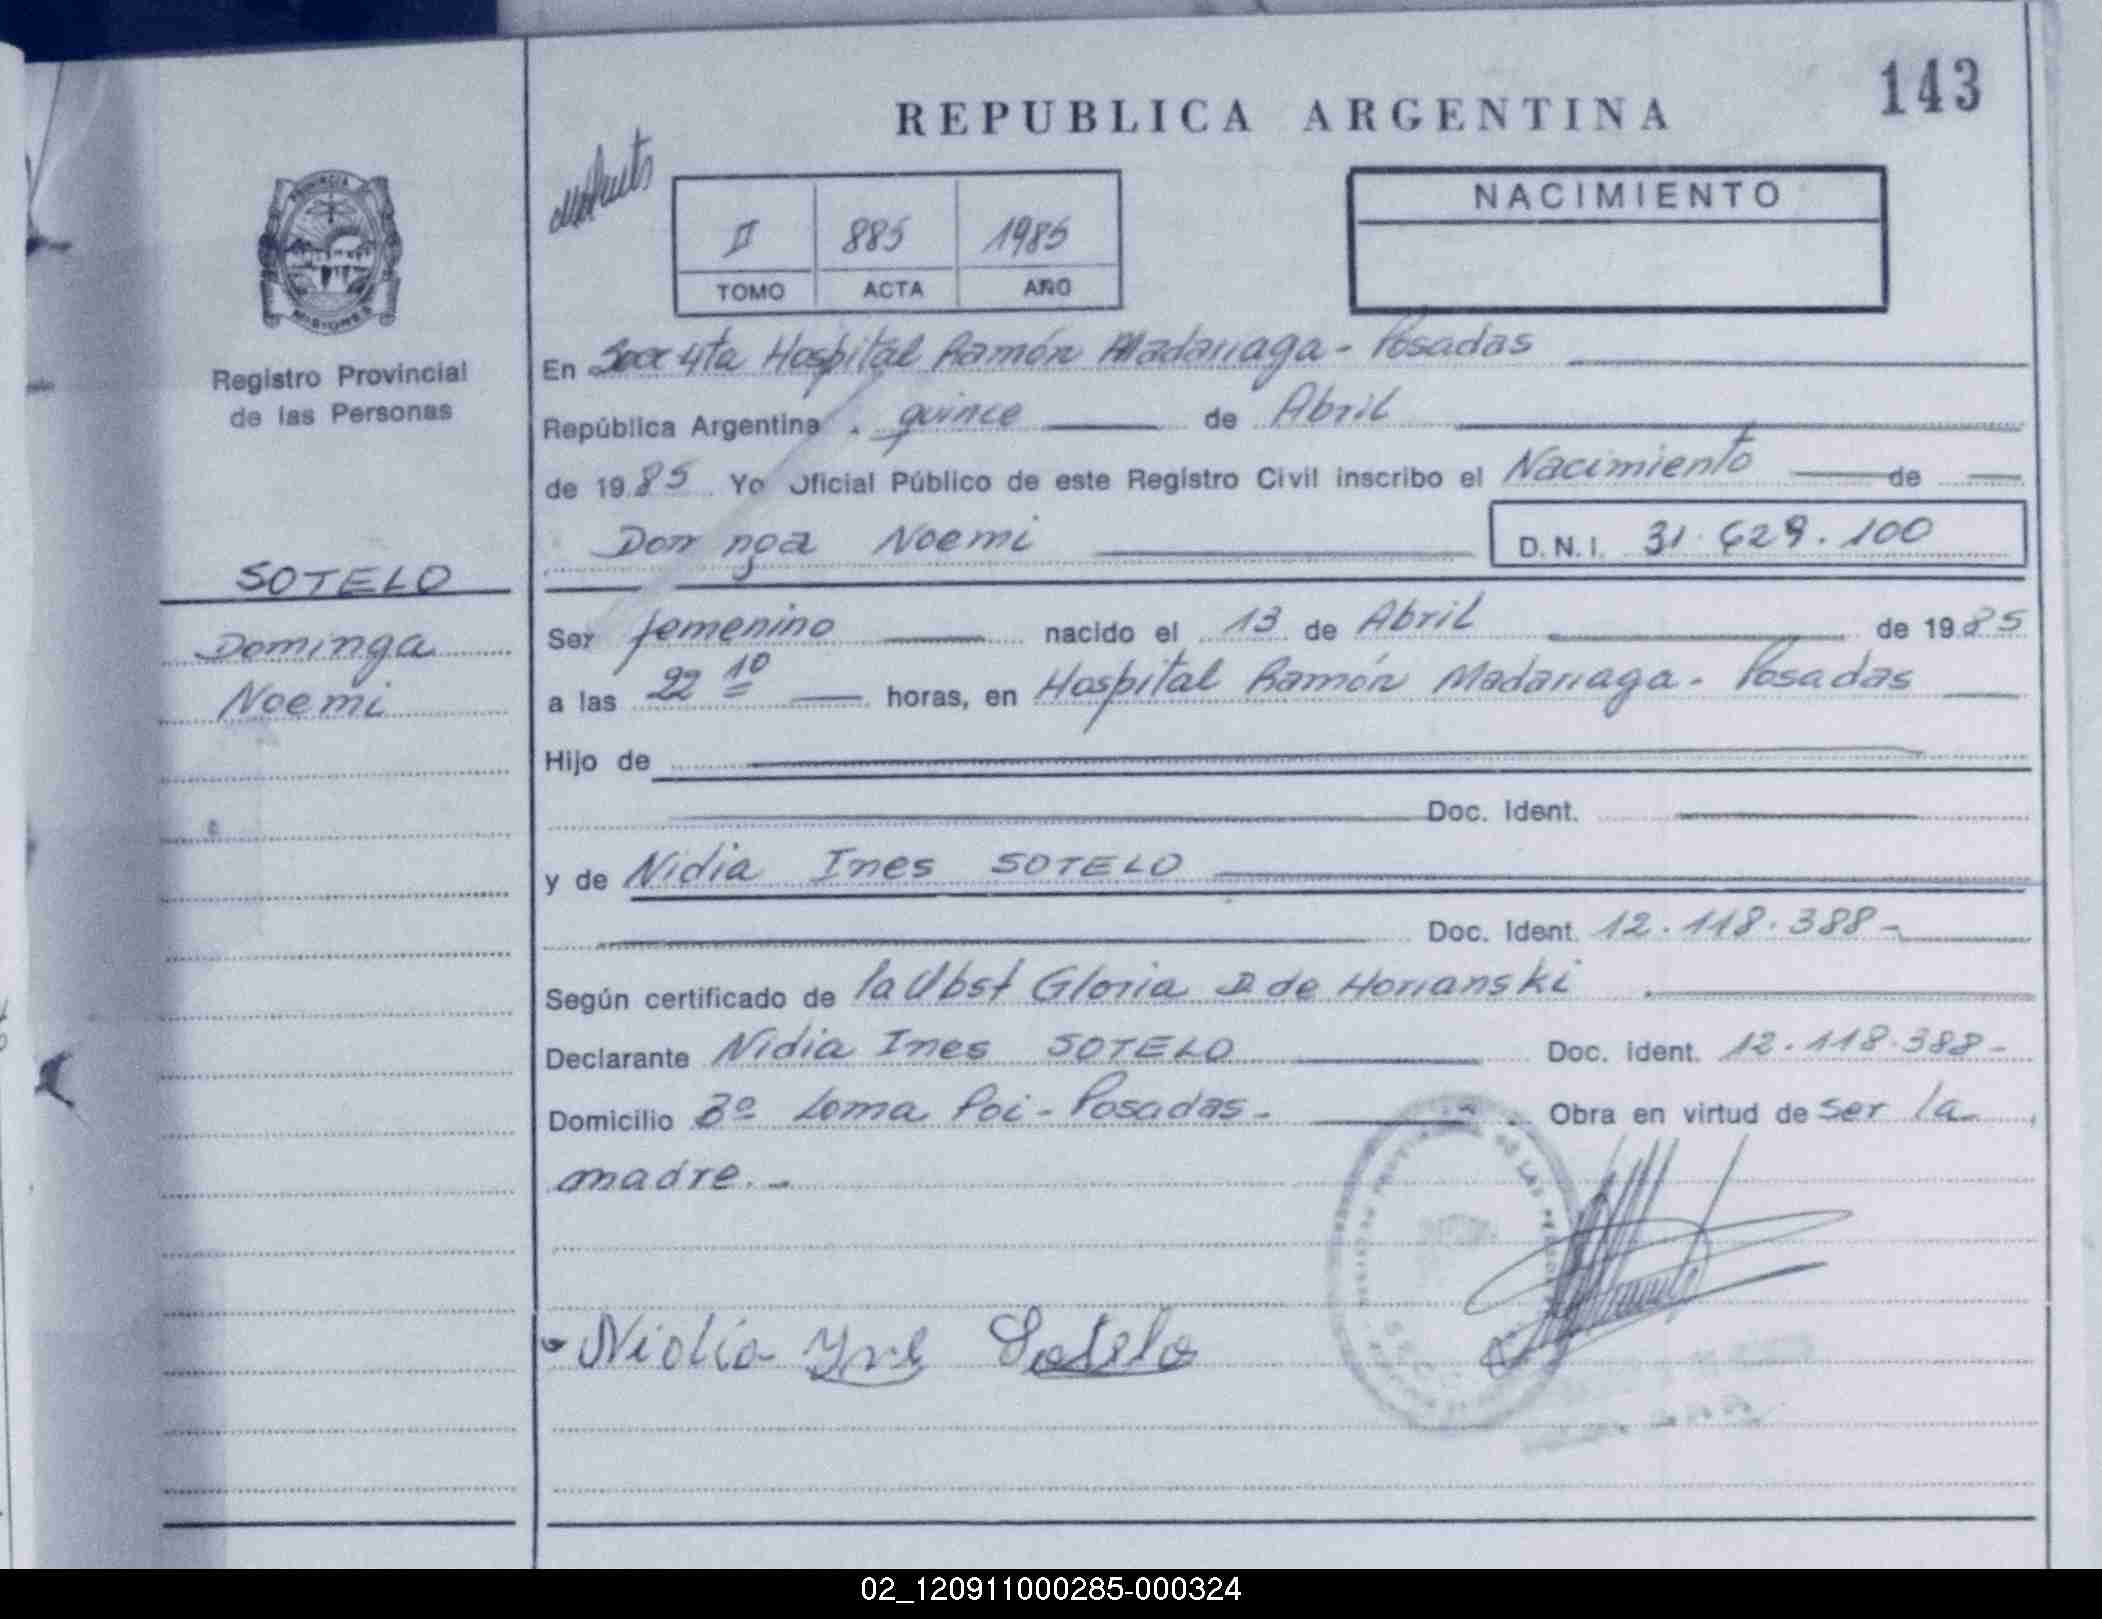 143
REPUBLICA ARGENTINA
NACIMIENTO
II 885 1985
TOMO ACTA AÑO
PROVINCIA
MISIONES
Registro Provincial
de las Personas
En Secc 4ta Hospital Ramón Madariaga - Posadas
República Argentina . quince de Abril
de 1985 Yo Oficial Público de este Registro Civil inscribo el Nacimiento de
Dominga Noemi D.N.I. 31.629.100
SOTELO
Dominga
Noemi
Ser femenino nacido el 13 de Abril de 1985
a las 22 10 horas, en Hospital Ramón Madariaga - Posadas
Hijo de
Doc. Ident.
y de Nidia Ines SOTELO
Doc. Ident. 12.118.388-
Según certificado de la Obst Gloria D de Horianski
Declarante Nidia Ines SOTELO Doc. Ident. 12.118.388-
Domicilio Bº Loma Poi - Posadas - Obra en virtud de ser la
madre. -
Nidia Ines Sotelo
02_120911000285-000324